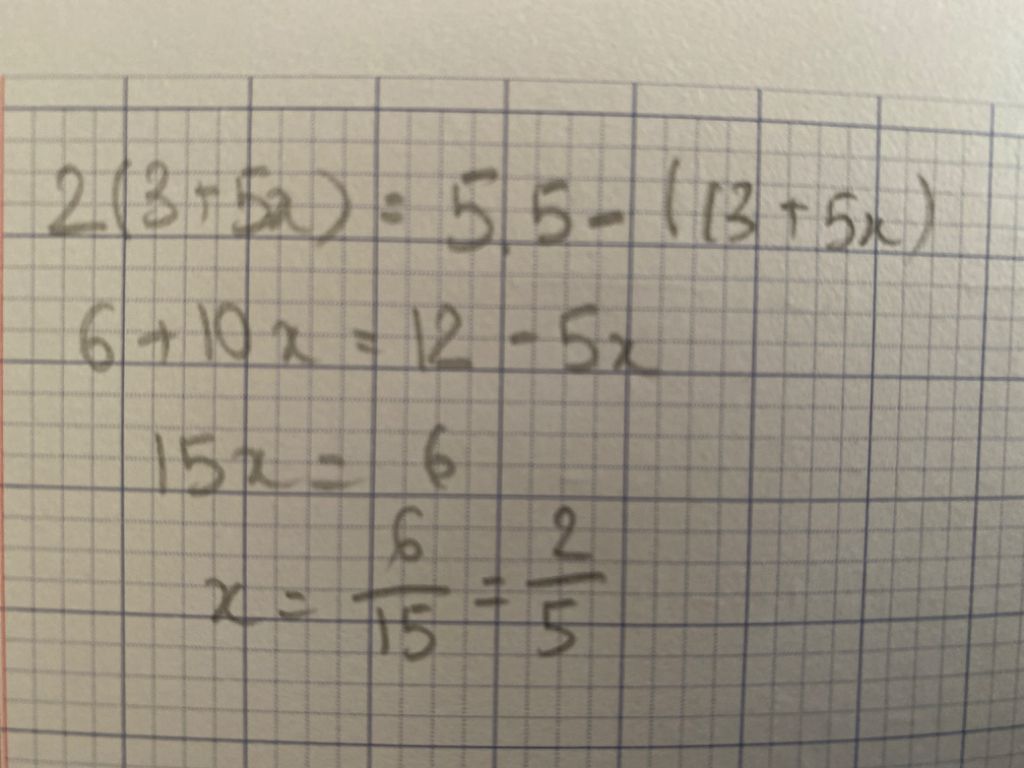 2(3+5x) = 5.5 - (13 + 5x)
6 + 10x = 12 - 5x
15x = 6
x = 6/15 = 2/5